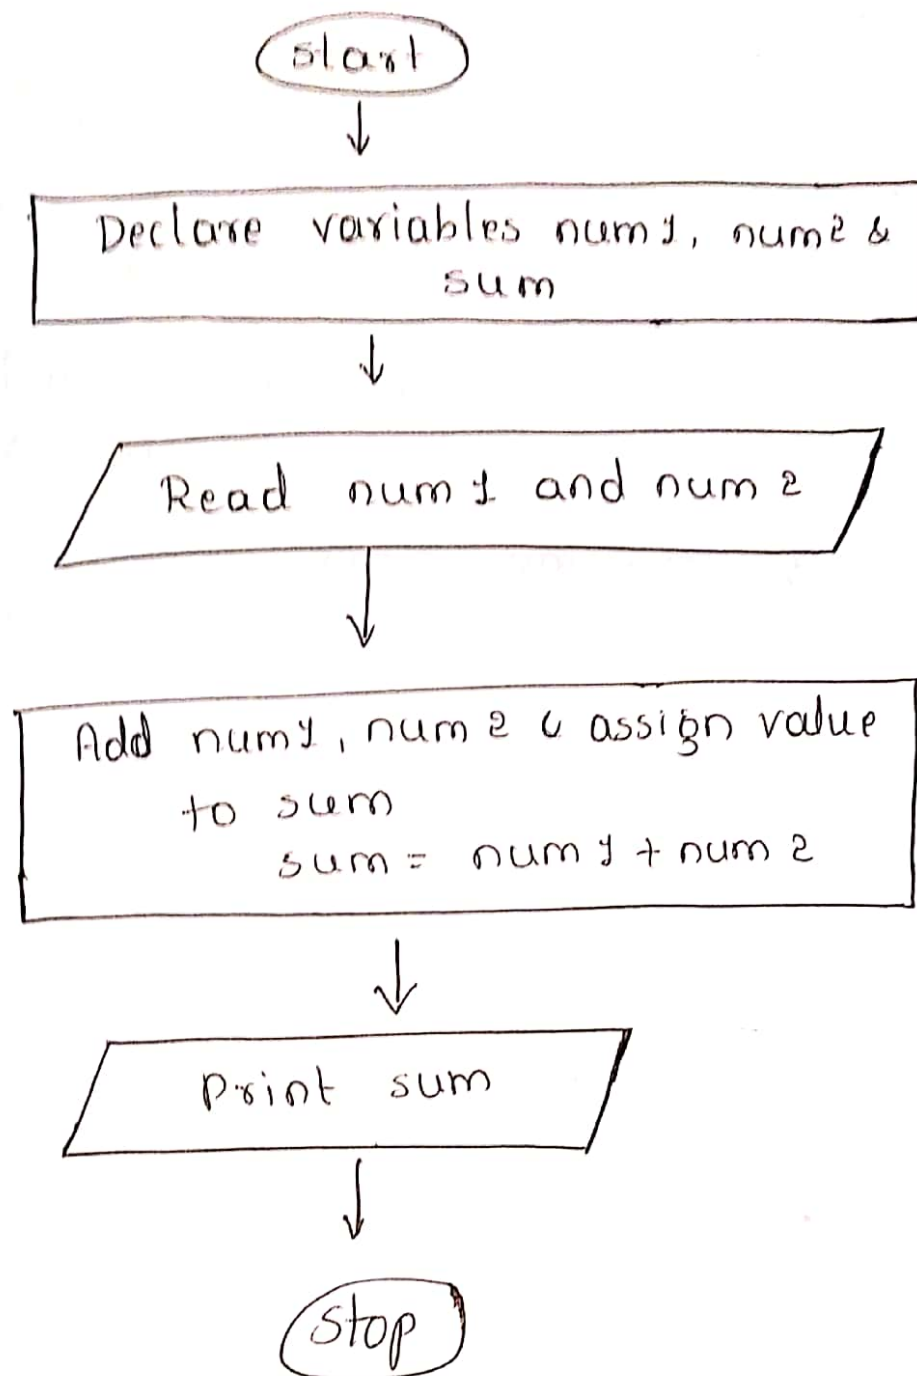 start
Declare variables num1, num2 &
sum
Read num1 and num2
Add num1, num2 & assign value
to sum
sum = num1 + num2
Print sum
Stop